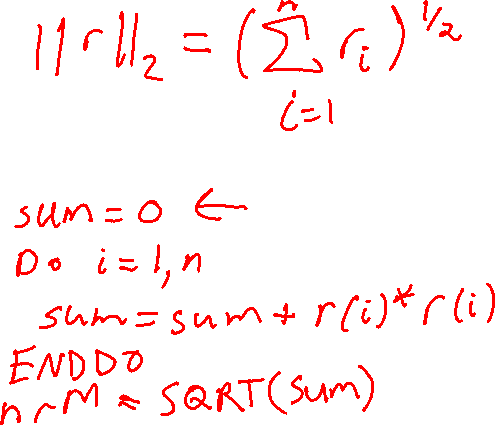 ||r||₂ = (∑ⁿᵢ₌₁ rᵢ)^1/2
sum = 0 ←
Do i = 1, n
sum = sum + r(i)*r(i)
ENDDO
nrM = SQRT(sum)